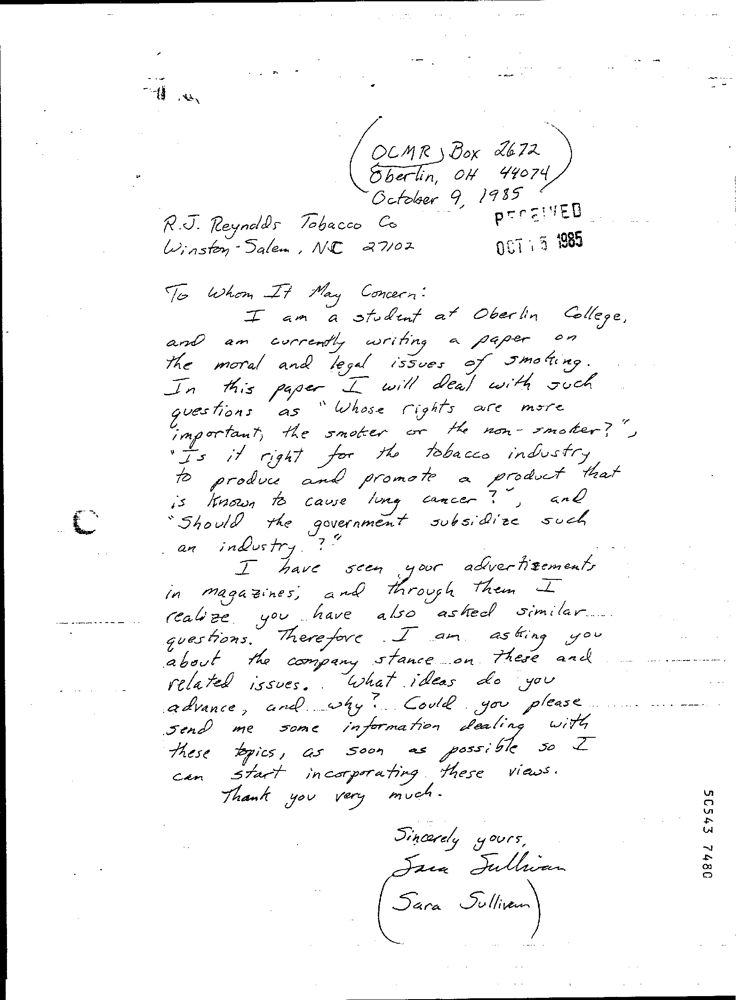 OCMR, Box 2672
Oberlin, OH 44074
October 9, 1985
R.J. Reynolds Tobacco Co
RECEIVED
Winston-Salem, NC 27102
OCT 15 1985
To Whom It May Concern:
I am a student at Oberlin College,
and am currently writing a paper on
the moral and legal issues of smoking.
In this paper I will deal with such
questions as "Whose rights are more
important, the smoker or the non-smoker?",
"Is it right for the tobacco industry
to produce and promote a product that
is known to cause lung cancer?", and
"Should the government subsidize such
an industry?"
I have seen your advertizements
in magazines, and through them I
realize you have also asked similar
questions. Therefore I am asking you
about the company stance on these and
related issues. What ideas do you
advance, and why? Could you please
send me some information dealing with
these topics, as soon as possible so I
can start incorporating these views.
Thank you very much.
Sincerely yours,
Sara Sullivan
(Sara Sullivan)
50543 7480